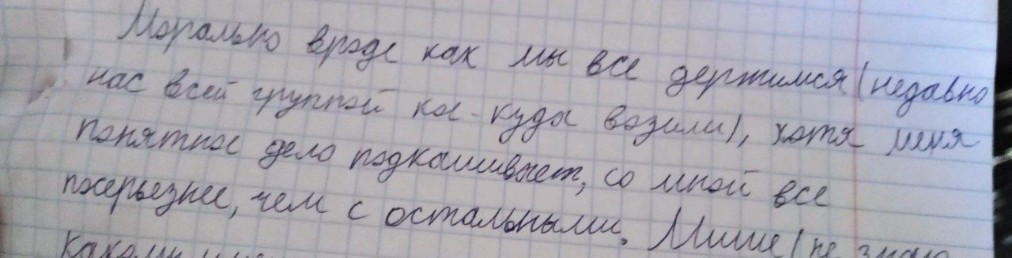 Морально вроде как мы все держимся (недавно
нас всей группой кое-куда возили), хотя меня
понятное дело подкашивает, со мной все
посерьезнее, чем с остальными. Мише (не знаю